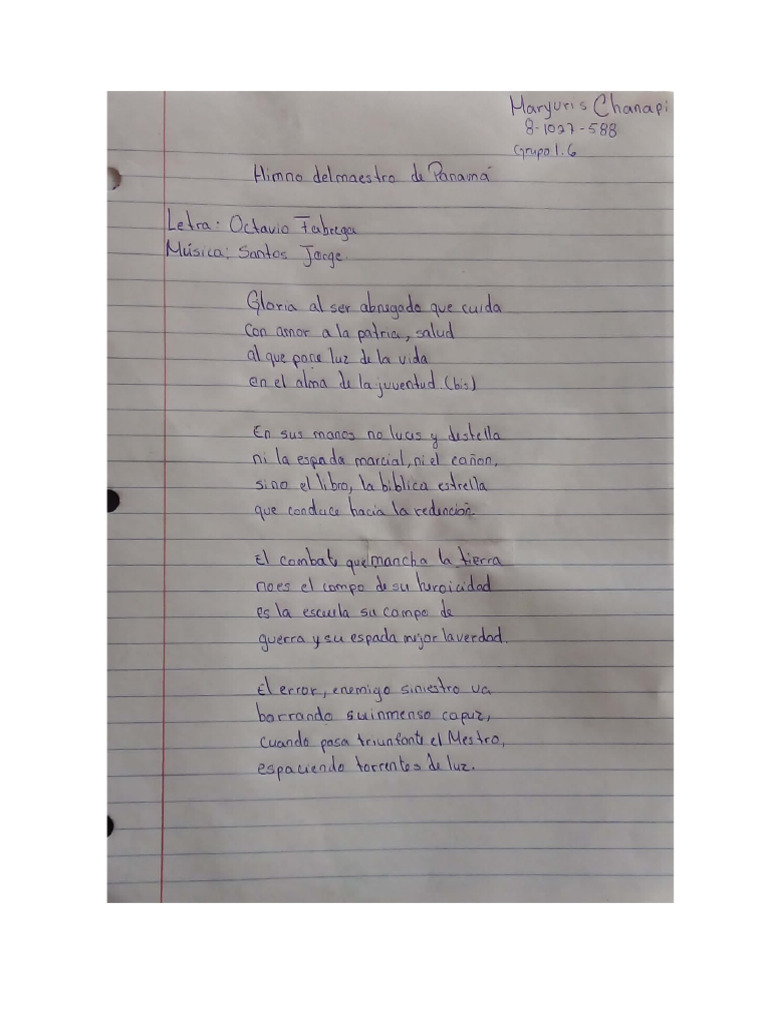 Maryuris Chanapi
8-1027-588
Grupo 1.6
Himno delmaestro de Panamá
Letra: Octavio Fabrega
Música: Santos Jorge
Gloria al ser abnegado que cuida
con amor a la patria, salud
al que pone luz de la vida
en el alma de la juventud.(bis)
En sus manos no luces y destella
ni la espada marcial, ni el cañon,
sino el libro, la biblica estrella
que conduce hacia la redención.
El combate quemancha la tierra
noes el campo de su huroicidad
es la escuela su campo de
guerra y su espada mejor laverdad.
El error, enemigo siniestro va
borrando suinmenso capuz,
cuando pasa triunfante el Mestro,
espaciendo torrentes de luz.